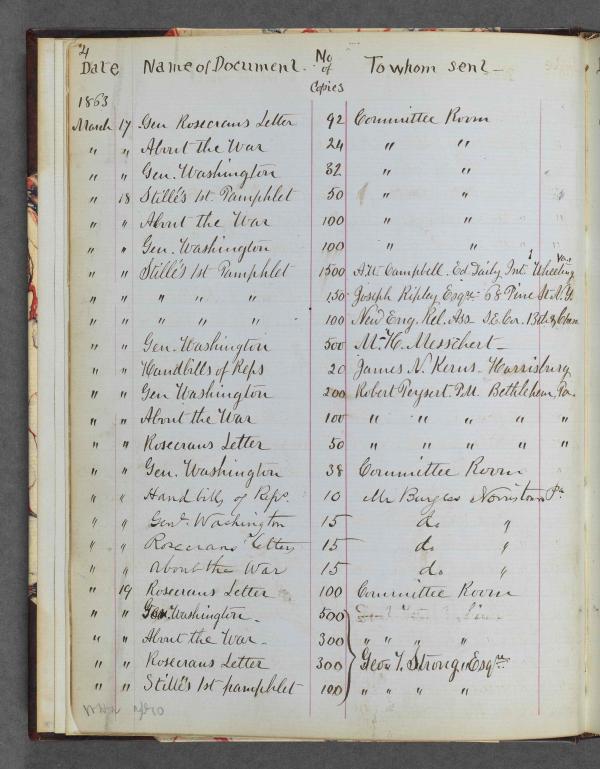 4
Date Name of Document. No of Copies To whom sent
1863
March 17 Gen Rosecrans Letter 92 Committee Room
" " About the War 24 " "
" " Gen. Washington 32 " "
" 18 Stillé's 1st Pamphlet 50 " "
" " About the War 100 " "
" " Gen. Washington 100 " "
" " Stillé's 1st Pamphlet 1500 A.W. Campbell. Ed Daily Int. Wheeling Va.
" " " " " 150 Joseph Ripley Esqre 68 Pine St N.Y.
" " " " " 100 New Eng. Rel. Ass. S.E. Cor. 13th &
" " Gen. Washington 500 Mr H. Messchert
" " Handbills of Reps 20 James N. Kerns. Harrisburg
" " Gen Washington 200 Robert Peysert. P.M. Bethlehem, Pa.
" " About the War 100 " " " " "
" " Rosecrans Letter 50 " " " " "
" " Gen. Washington 38 Committee Room
" " Hand bills of Reps. 10 Mr Burgess Norristown Pa
" " Genl. Washington 15 do "
" " Rosecrans Letters 15 do "
" " About the War 15 do "
" 19 Rosecrans Letter 100 Committee Room
" " Gen. Washington 500
" " About the War 300 " " " "
" " Rosecrans Letter 300 Geo. T. Strong, Esqre
" " Stillé's 1st pamphlet 100 " " " "